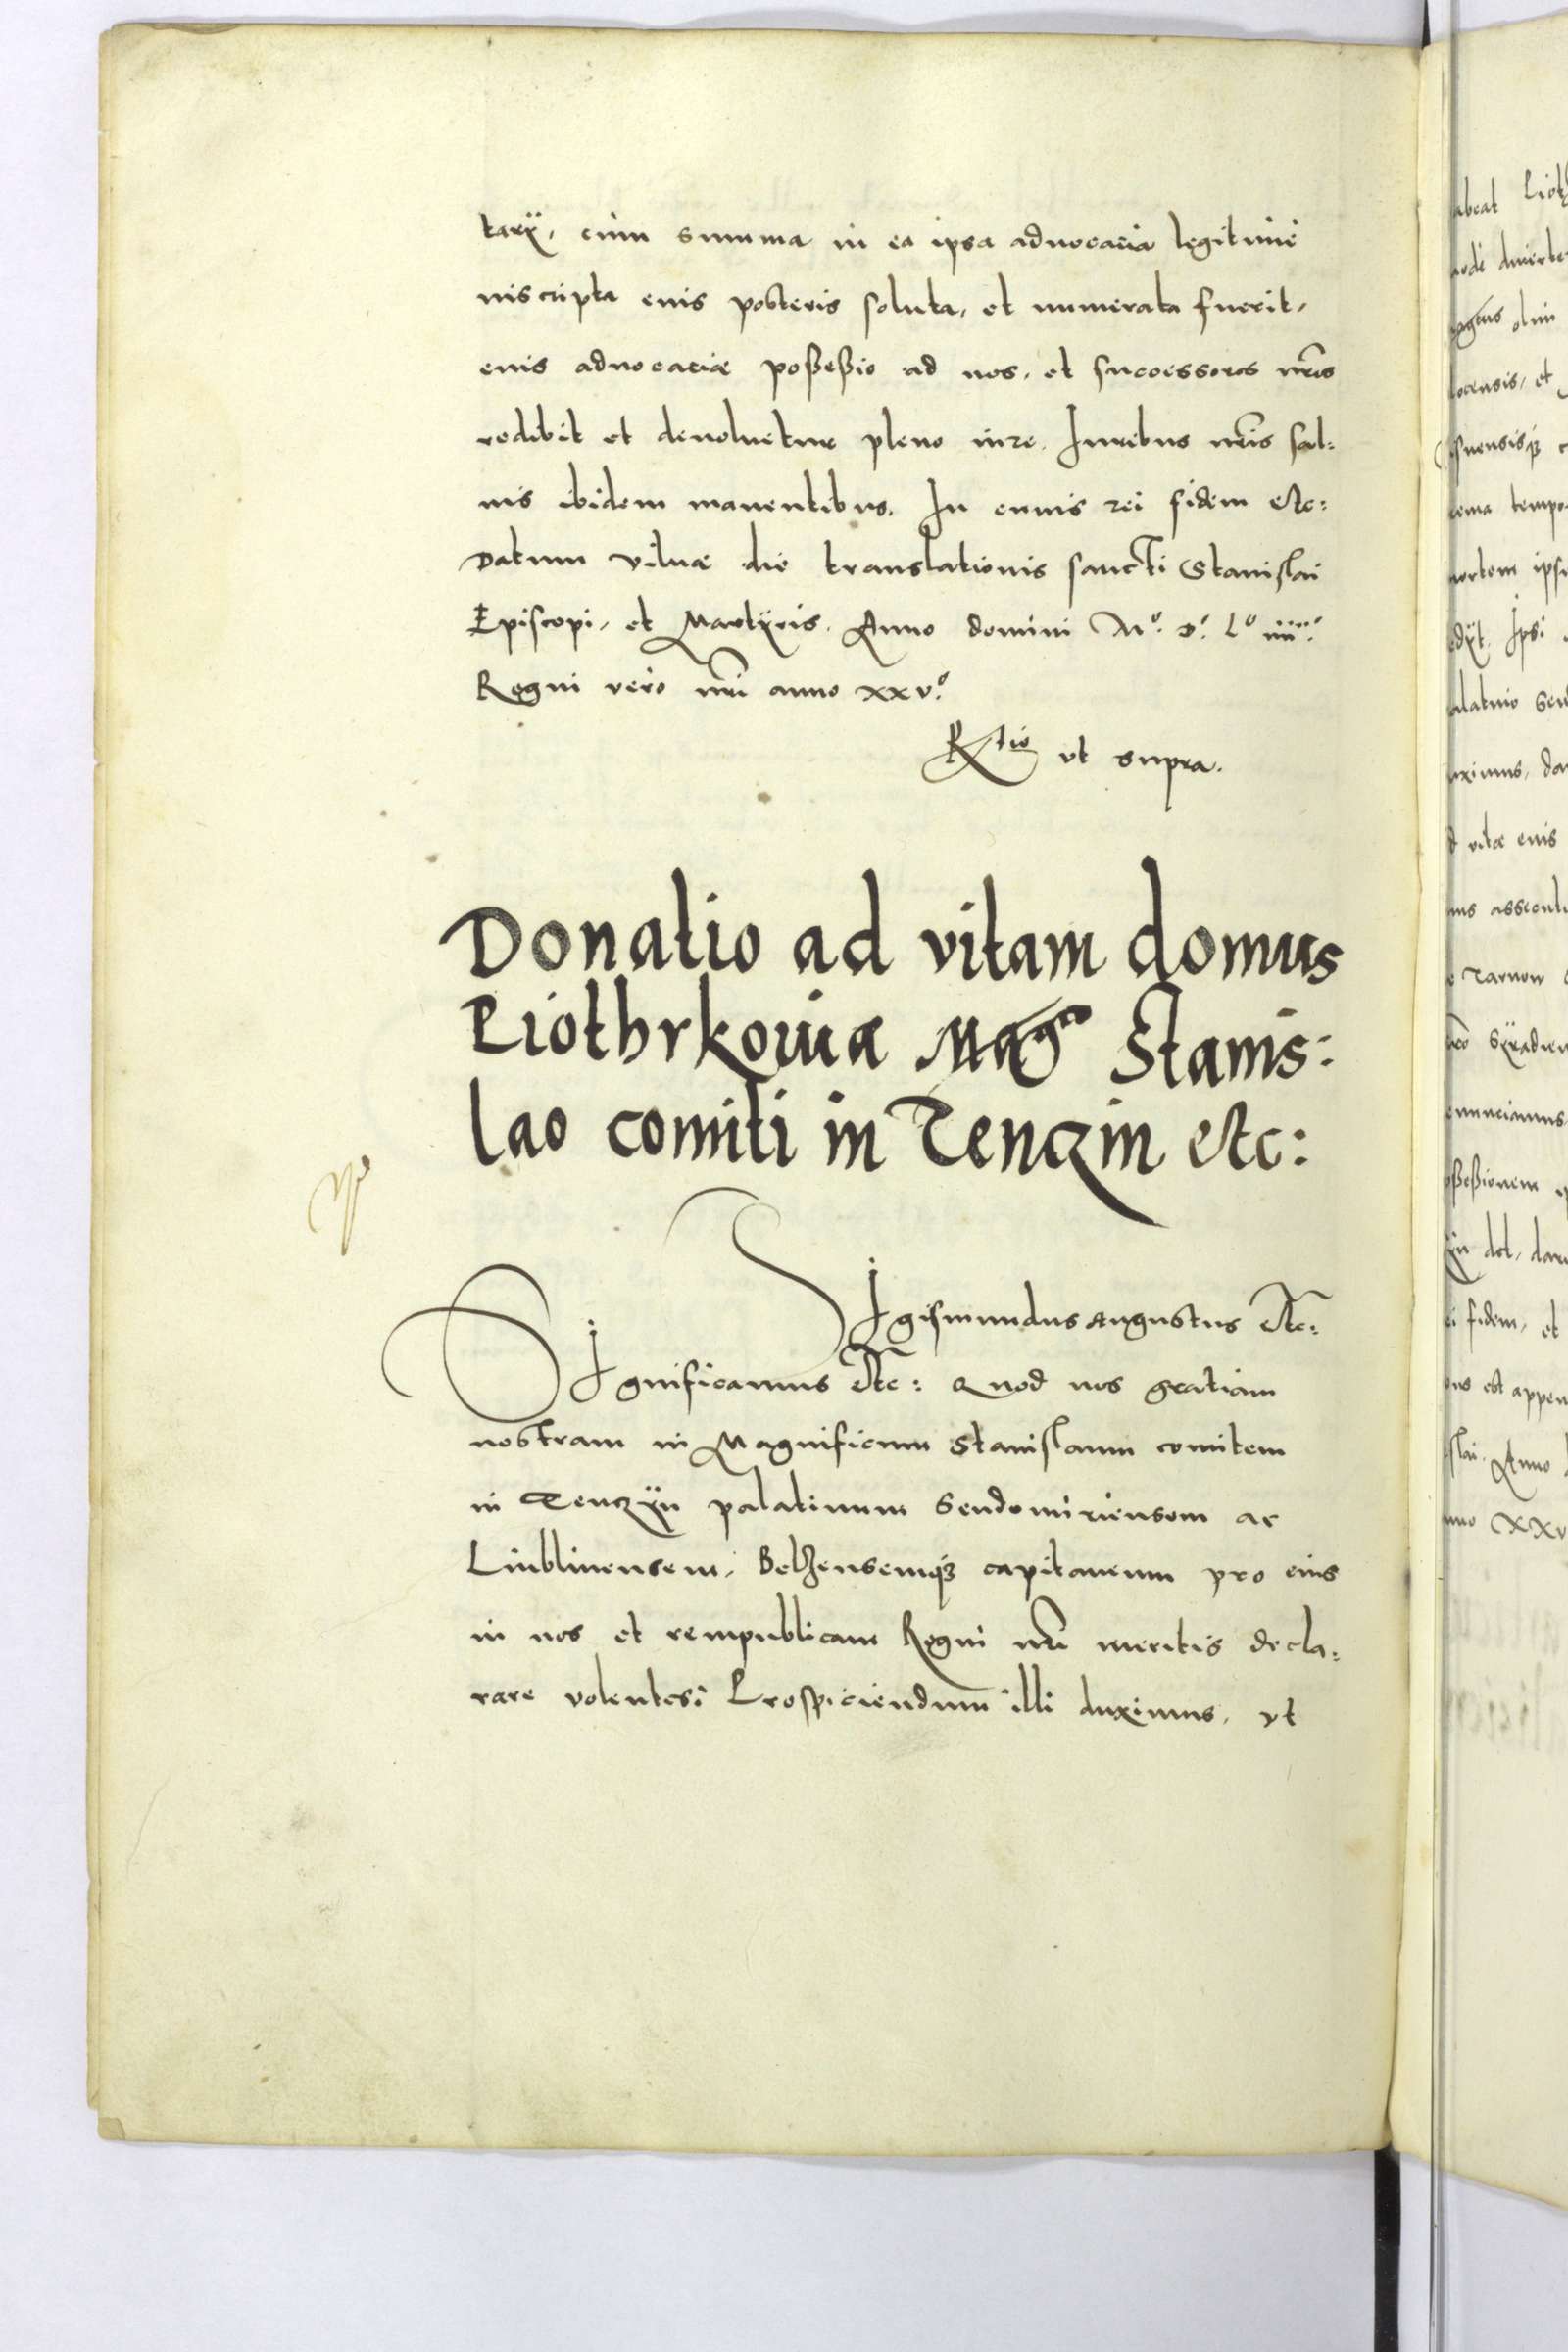 tarÿ, cum summa in ea ipsa aduocacia legitime
inscripta eius posteris soluta, et numerata fuerit,
eius aduocaciæ poßeßio ad nos, et successores nr̃os
redibit et deuoluetur pleno iure. Iuribus nr̃is sal:
uis ibidem manentibus. In cuius rei fidem etc:
Datum vilnæ die translationis sancti Stanislai
Episcopi, et Martÿris. Anno domini Mº. Dº. Lº iiiiº.
Regni vero nr̃i anno xxvº.
Rtio vt supra.
Donatio ad vitam domus
Piothrkouiæ Magco Stanis:
lao comiti in Tenczin etc:
SIgismundus Augustus etc:
SIgnificamus etc: Quod nos gratiam
nostram in Magnificum Stanislaum comitem
in Tenczÿn palatinum Sendomiriensem ac
Lublinensem, Belzensemqȝ capitaneum pro eius
in nos et rempublicam Regni nr̃i meritis decla:
rare volentes: Prospiciendum illi duximus, vt
abeat Pioth
olim
ocensis, et
suensisqȝ c
tempo
mortem ips
Ipsi
alatino Sen
uximus, do
vitæ eius
Tarnow
Sÿradien
enunciamus
oßeßionem
dol, dam
fidem, et
est appen
slai. Anno
xxv